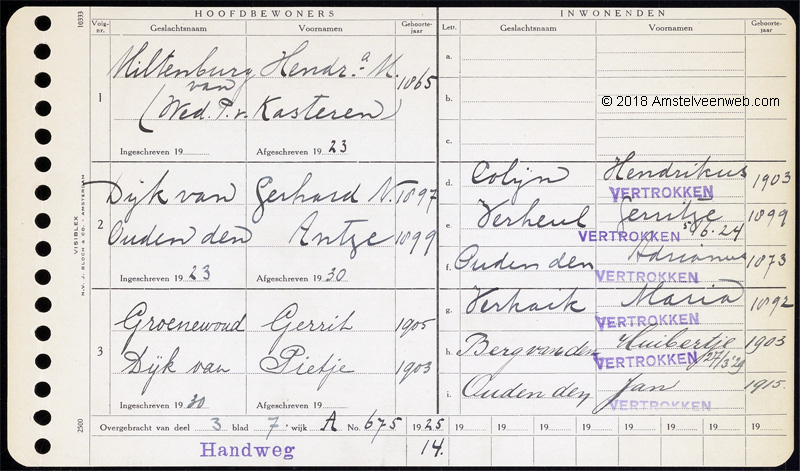 HOOFDBEWONERS
Volg-nr. Geslachtsnaam Voornamen Geboorte-jaar
1
Miltenburg Hendr.a M. 1865
van
(Wed. P. v. Kasteren)
Ingeschreven 19 Afgeschreven 19 23
2
Dijk van Gerhard N. 1897
Ouden den Antje 1899
Ingeschreven 19 23 Afgeschreven 19 30
3
Groenewoud Gerrit 1905
Dijk van Pietje 1903
Ingeschreven 19 30 Afgeschreven 19
Overgebracht van deel 3 blad 7 wijk A No. 675 1925
Handweg 14.
INWONENDEN
Lett. Geslachtsnaam Voornamen Geboorte-jaar
a.
b.
c.
d. Colijn Hendrikus 1903
VERTROKKEN
e. Verheul Gerritje 1899
VERTROKKEN 5/6.24
f. Ouden den Adrianus 1873
VERTROKKEN
g. Verhaik Maria 1892
VERTROKKEN
h. Berg van den Huibertje 1903
VERTROKKEN 27/3'29
i. Ouden den Jan 1915.
VERTROKKEN
19 19 19 19 19 19 19 19
10333
VISIBLEX
N.V. J. BLOCH & CO. - AMSTERDAM
2500
© 2018 Amstelveenweb.com